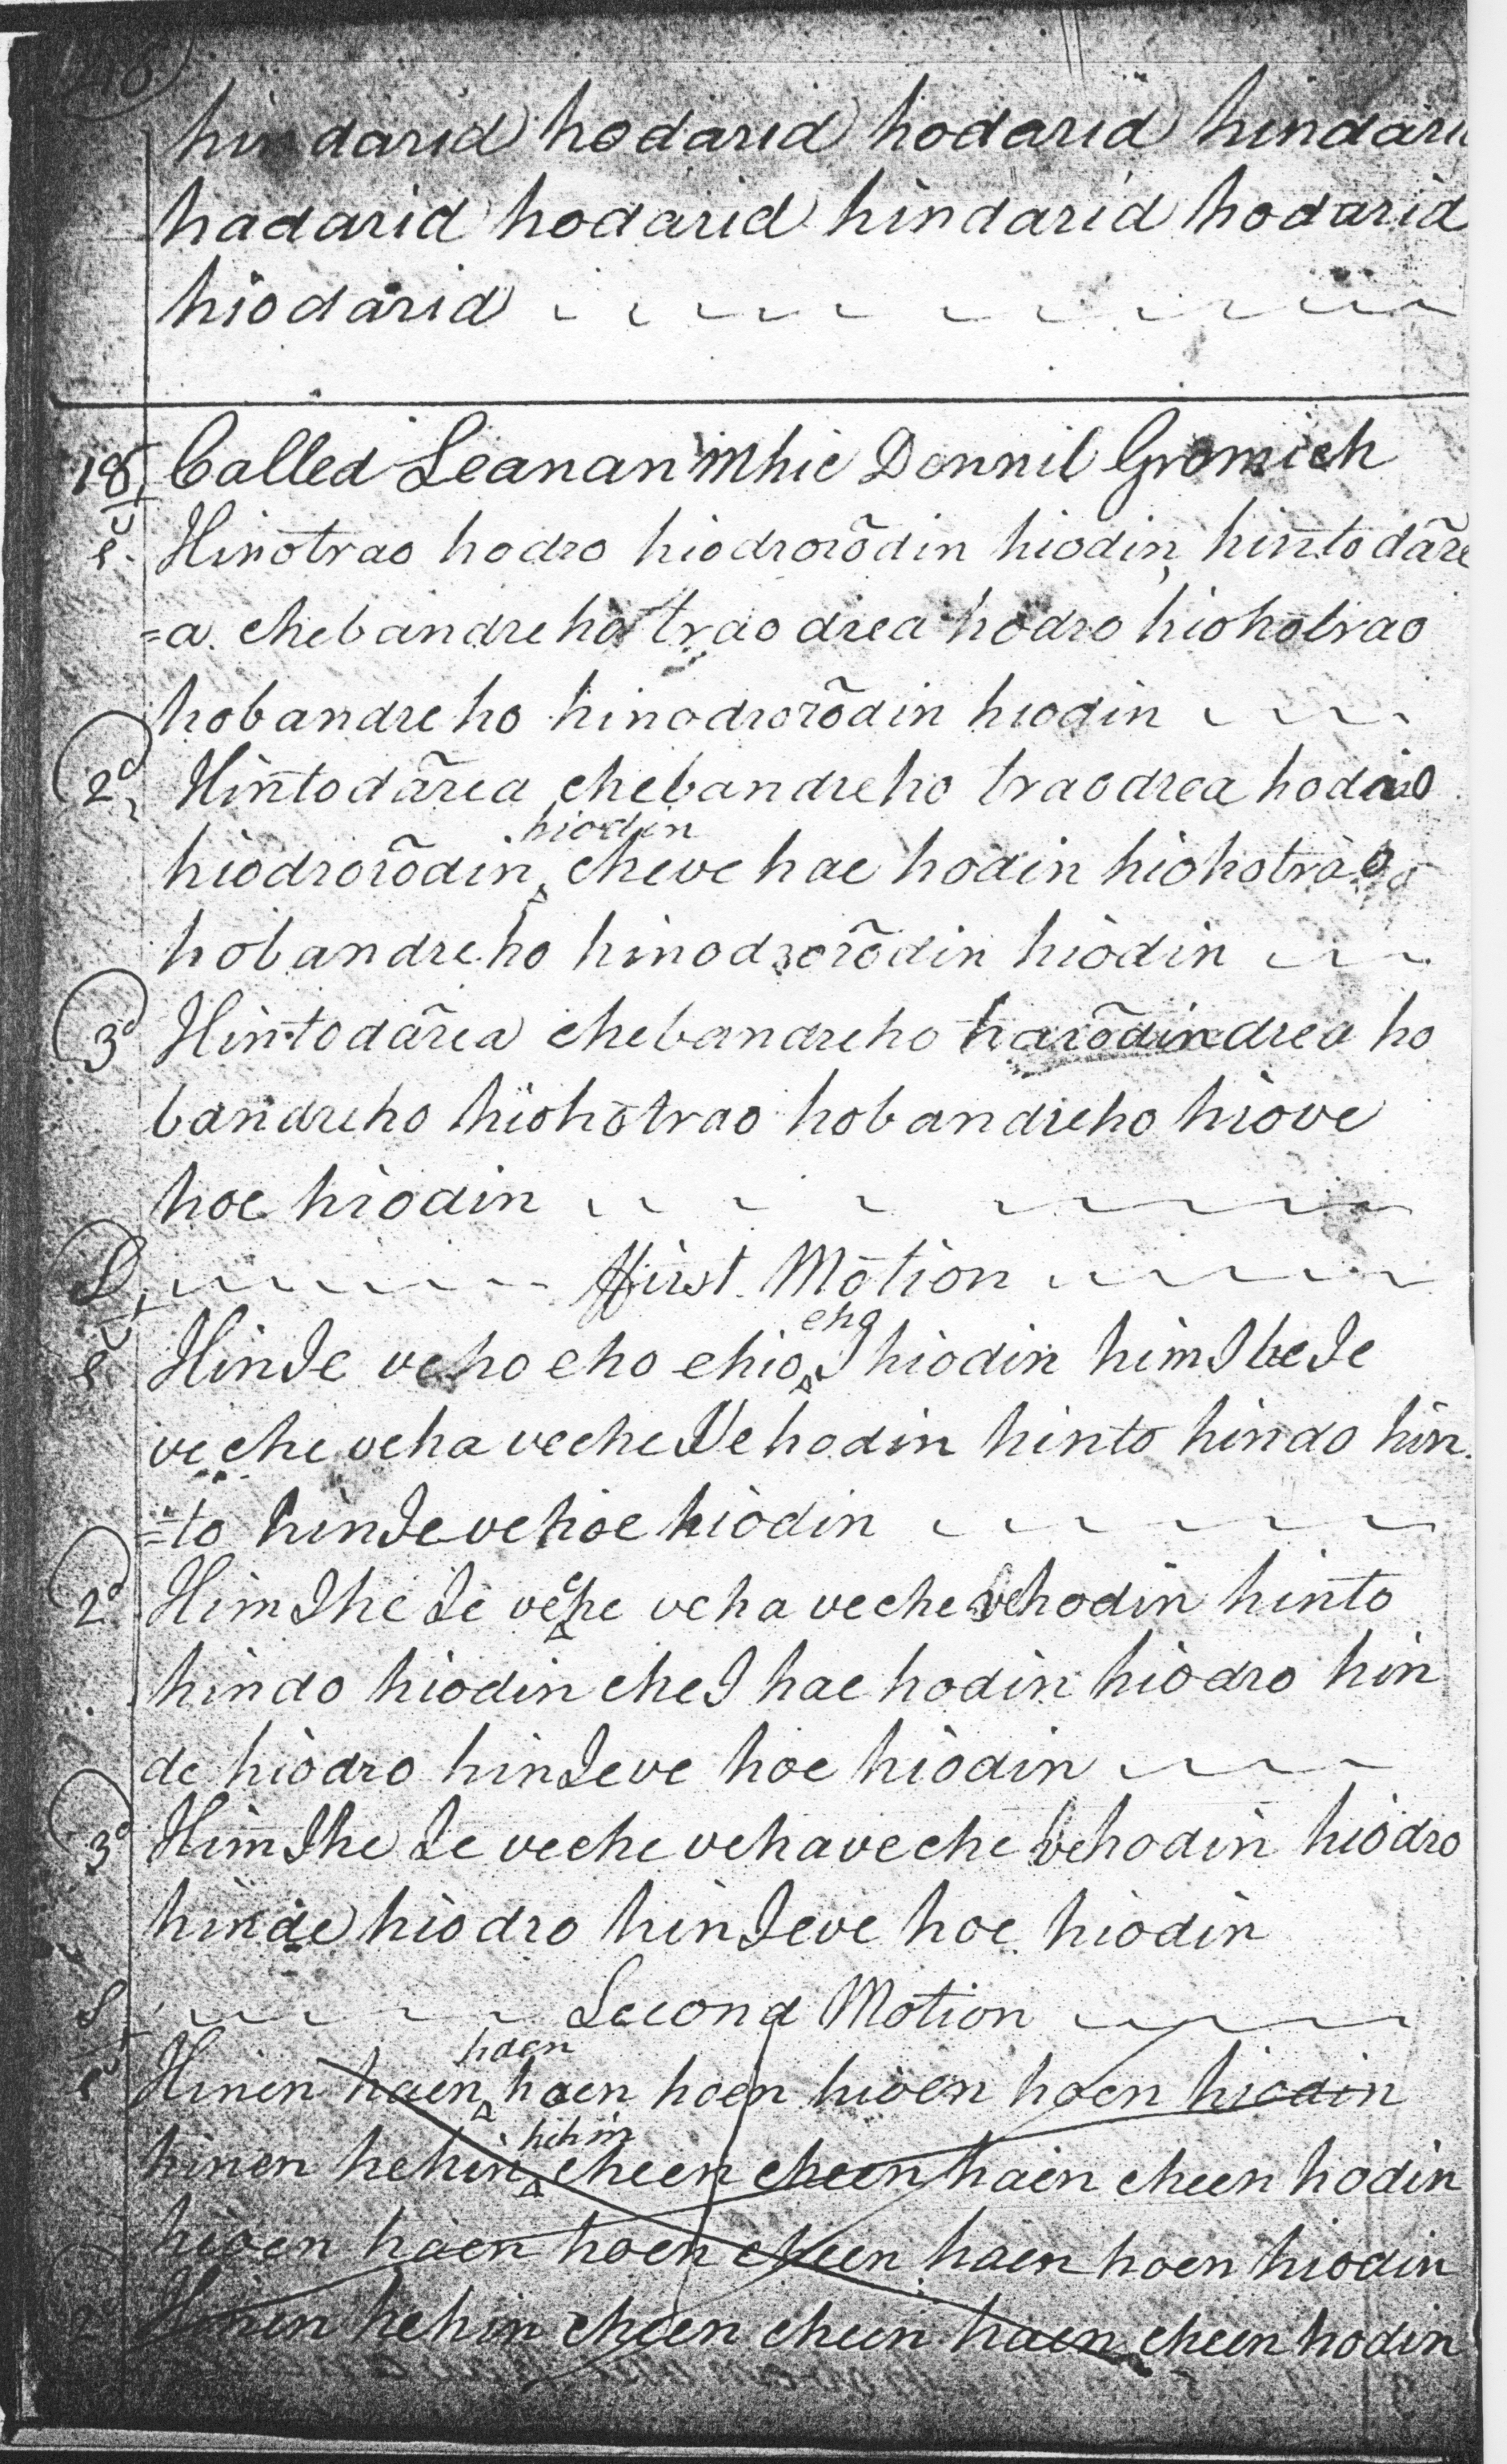 hindarid hodarid hodarid hindari
hadarid hodarid hindarid hodarid
hiodarid
18, Called Leanan Mhic Donnil Gromich
Hinotrao hodro hiodrorõdin hiodin, hintodãre
=a. chebandreho trao drea hodro hiohotrao
hobandreho hinodrorõdin hiodin
2d, Hintodãrea chebandreho traodrea hodro
hiodin
hiodrorõdin ‸ cheve hae hodin hiohotrao
hobandreho hinodrorõdin hiodin
3d Hintodãrea chebandreho harõdindrea ho
bandreho hiohotrao hobandreho hiove
hoe hiodin
First Motion
eho
HinIe veho eho ehio ‸ I hiodin himIheIe
veche veha vecheVehodin hinto hindo hin
=to hinIevehoe hiodin
2d. HimIhe Ie veche veha veche vehodin hinto
hindo hiodin cheI hae hodin hiodro hin
de hiodro hinIeve hoe hiodin
3d HimIhe Ie veche vehaveche vehodin hiodro
hinde hiodro hinIeve hoe hiodin
Second Motion
haen
Hinen haen ‸ haen hoen hioen hoen hiodin
hehin
hinen hehin ‸ cheen cheen haen cheen hodin
hioen haen hoen cheen haen hoen hiodin
2d Hinen hehin cheen cheen haen cheen hodin